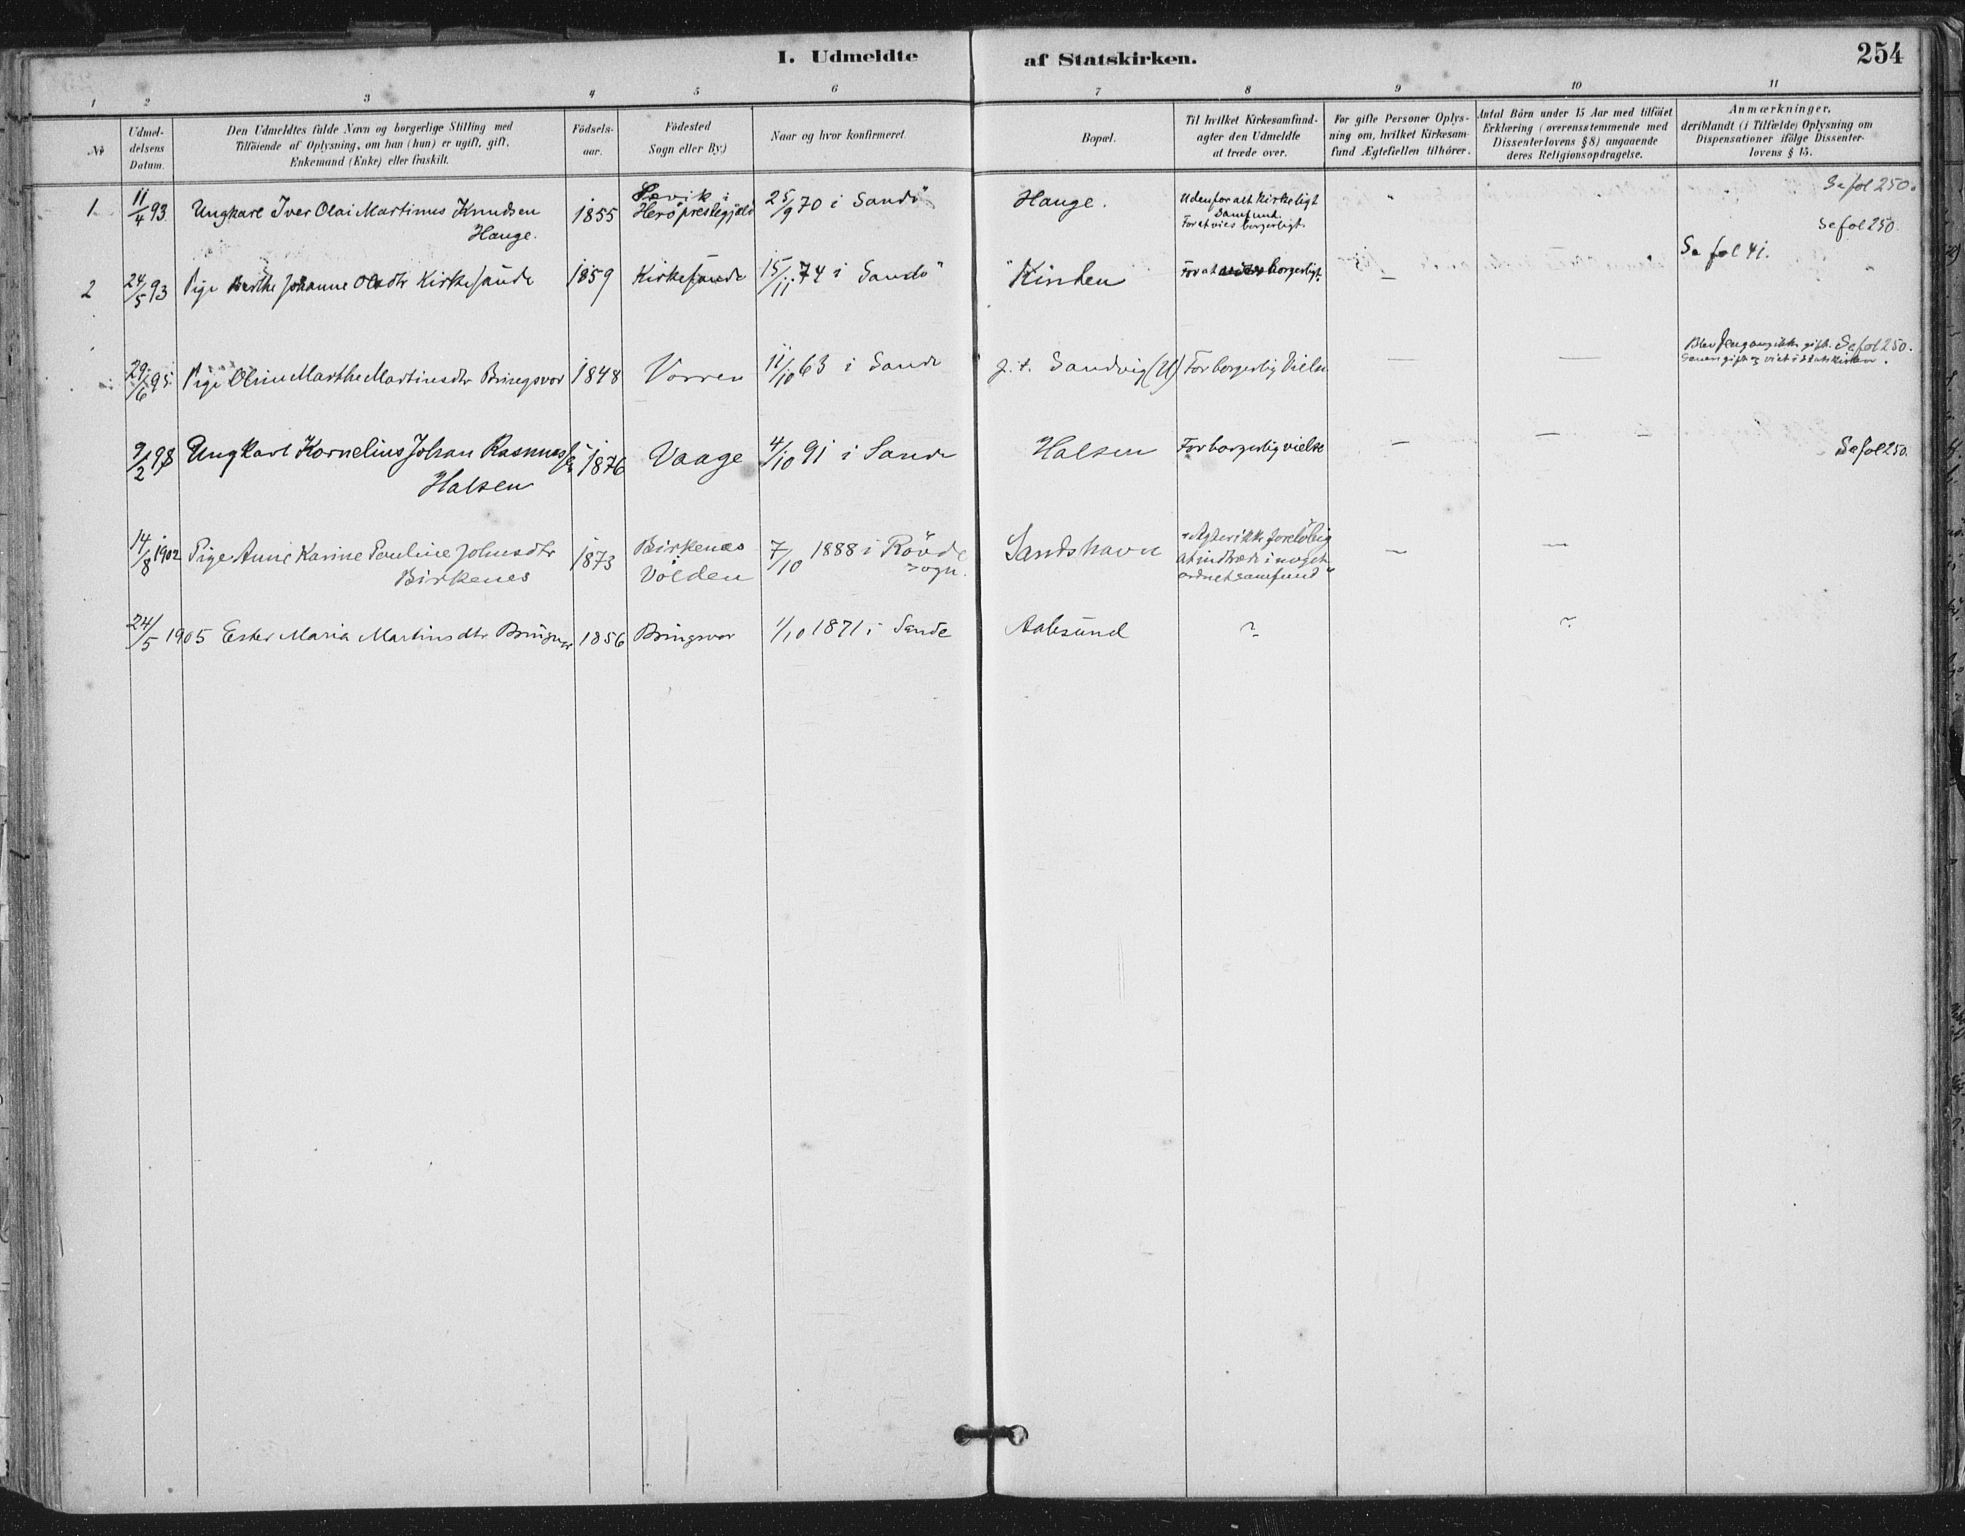 I. Udmeldte af Statskirken.
254
1 2 3 4 5 6 7 8 9 10 11
Nr
Udmel-
delsens
Datum.
Den Udmeldtes fulde Navn og borgerlige Stilling med
Tilföiende af Oplysning, om han (hun) er ugift, gift,
Enkemand (Enke) eller fraskilt.
Födsels-
aar.
Födested
Sogn eller By.)
Naar og hvor konfirmeret.
Bopæl.
Til hvilket Kirkesamfund-
agter den Udmeldte
at træde over.
For gifte Personer Oplys-
ning om, hvilket Kirkesam-
fund Ægtefællen tilhörer.
Antal Börn under 15 Aar med tilföiet
Erklæring (overensstemmende med
Dissenterlovens § 8) angaaende
deres Religionsopdragelse.
Anmærkninger,
deriblandt (i Tilfælde) Oplysning om
Dispensationer ifölge Dissenter-
lovens § 15.
1
11/4 93
Ungkarl Iver Olai Martinus Knudsen
Hauge.
1855
Sævik i
Herö prestegjæld
25/9 70 i Sandö
Hauge.
Udenfor alt Kirkeligt
Samfund
For at vies borgerligt.
"
"
Se fol 250.
Se fol 250.
2
24/5 93
Pige Berthe Johanne Olsdtr Kirkesande
1859
Kirkesande
15/11 74 i Sandö
Kinden
For at borgerligt.
—
Se fol 41.
29/6 95
Pige Oline Marthe Martinsdtr Bringsvor
1848
Vorren
11/10 63 i Sande
p.t. Sandvig (U)
For borgerlig Vielse
—
—
Blev gift. Se fol 250.
gift og viet i Statskirken.
9/2 98
Ungkarl Kornelius Johan Rasmus
Halsen
1876
Vaage
4/10 91 i Sande
Halsen
For borgerlig vielse
—
— —
Se fol 250.
14/8 1902
Pige Anne Karine Pauline Johnsdtr
Birkenes
1873
Birkenes
Volden
7/10 1888 i Rövde
sogn.
Sandshavn
"Agter ikke foreløbig
at indtræde i noget
ordnet samfund"
—
—
24/5 1905
Ester Maria Martinsdtr Bringsvor
1856
Bringsvor
1/10 1871 i Sande
Aalesund
~
~